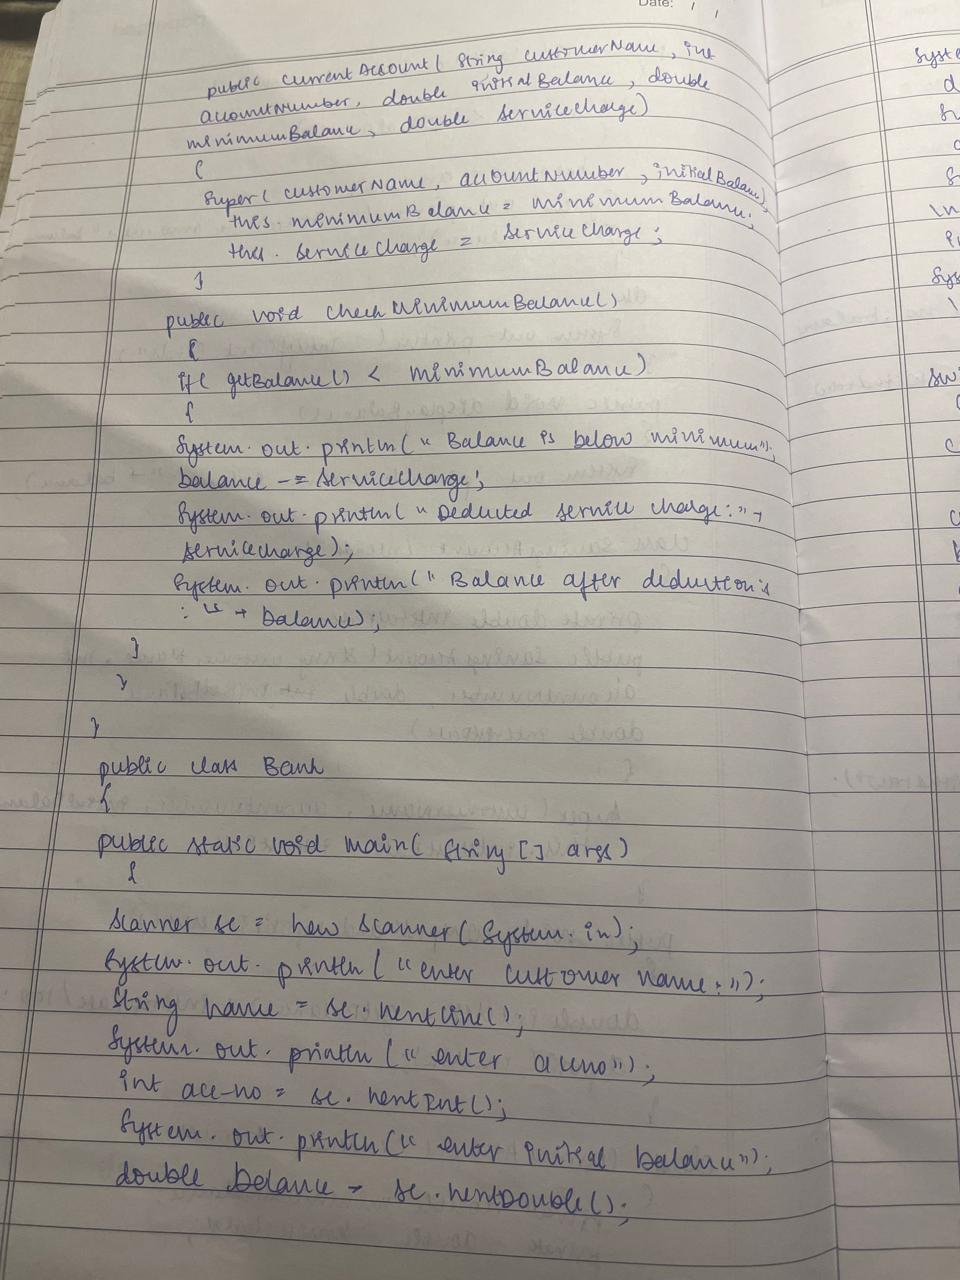 Date: / /
public currentAccount( String customerName, int
accountNumber, double initialBalance, double
minimumBalance, double servicecharge)
{
super( customerName, accountNumber, initialBalance);
this. minimumBalance = minimumBalance;
this. servicecharge = servicecharge;
}
public void checkMinimumBalance()
{
if( getBalance() < minimumBalance)
{
System. out. println(" Balance is below minimum");
balance -= servicecharge;
System. out. println(" Deducted service charge:" +
servicecharge);
System. out. println(" Balance after deduction is
: " + balance);
}
}
}
public class Bank
{
public static void main( String [] args)
{
Scanner sc = new Scanner( System. in);
System. out. println( "enter customer name:");
String name = sc. nextLine();
System. out. println ( " enter accno");
int acc-no = sc. nextInt();
System. out. println( " enter initial balance");
double balance = sc. nextDouble();